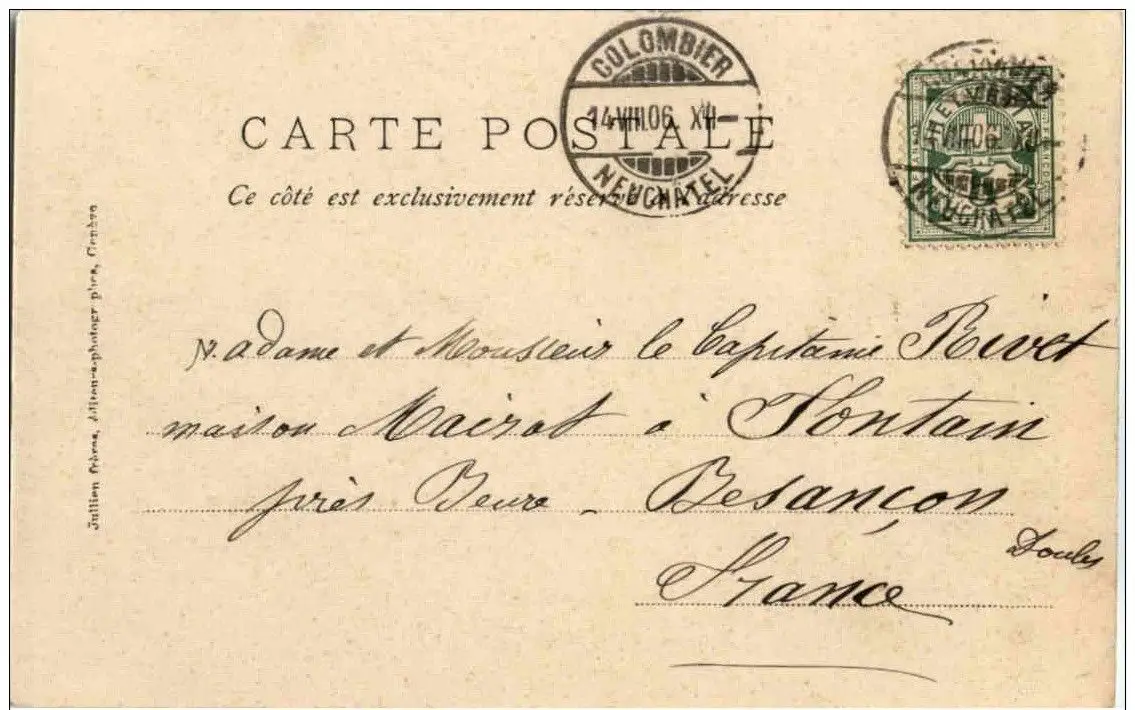 COLOMBIER
14.VIII.06. XII–
NEUCHATEL
HELVETIA
VIII.06. XII–
NEUCHATEL
CARTE POSTALE
Ce côté est exclusivement réservé à l'adresse
Jullien frères, éditeurs-photographes, Genève
Madame et Monsieur le Capitaine Rivet
maison Mairot à Fontain
près Beure - Besançon
Doubs
France